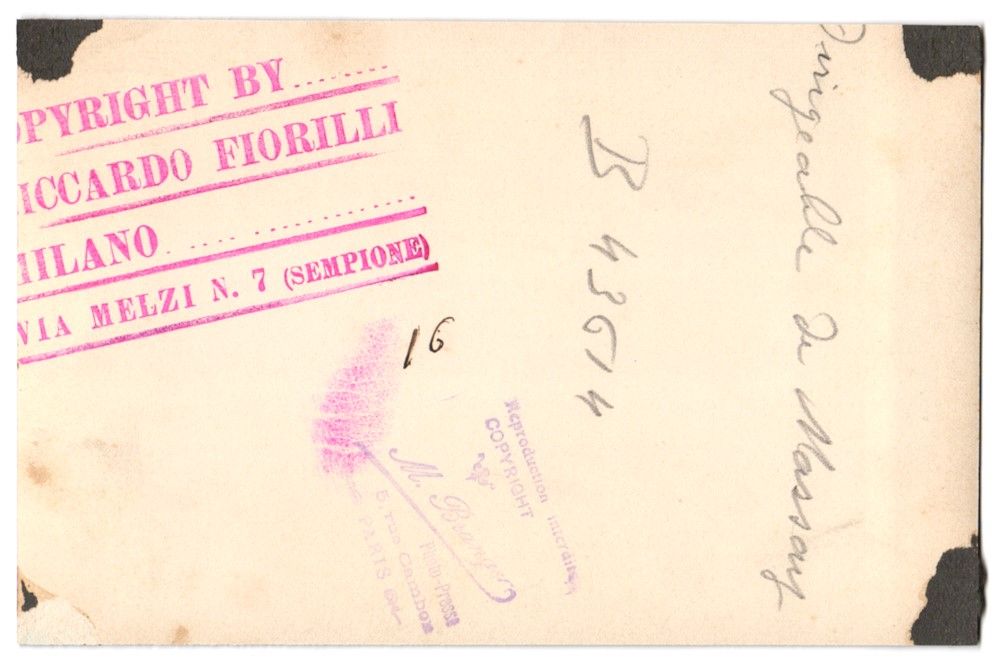 OPYRIGHT BY........
ICCARDO FIORILLI
MILANO
VIA MELZI N. 7 (SEMPIONE)
16
Reproduction interdite
COPYRIGHT
M.
Photo-Presse
5, rue Cambon
PARIS
B 4361 4
Dirigeable de Massay